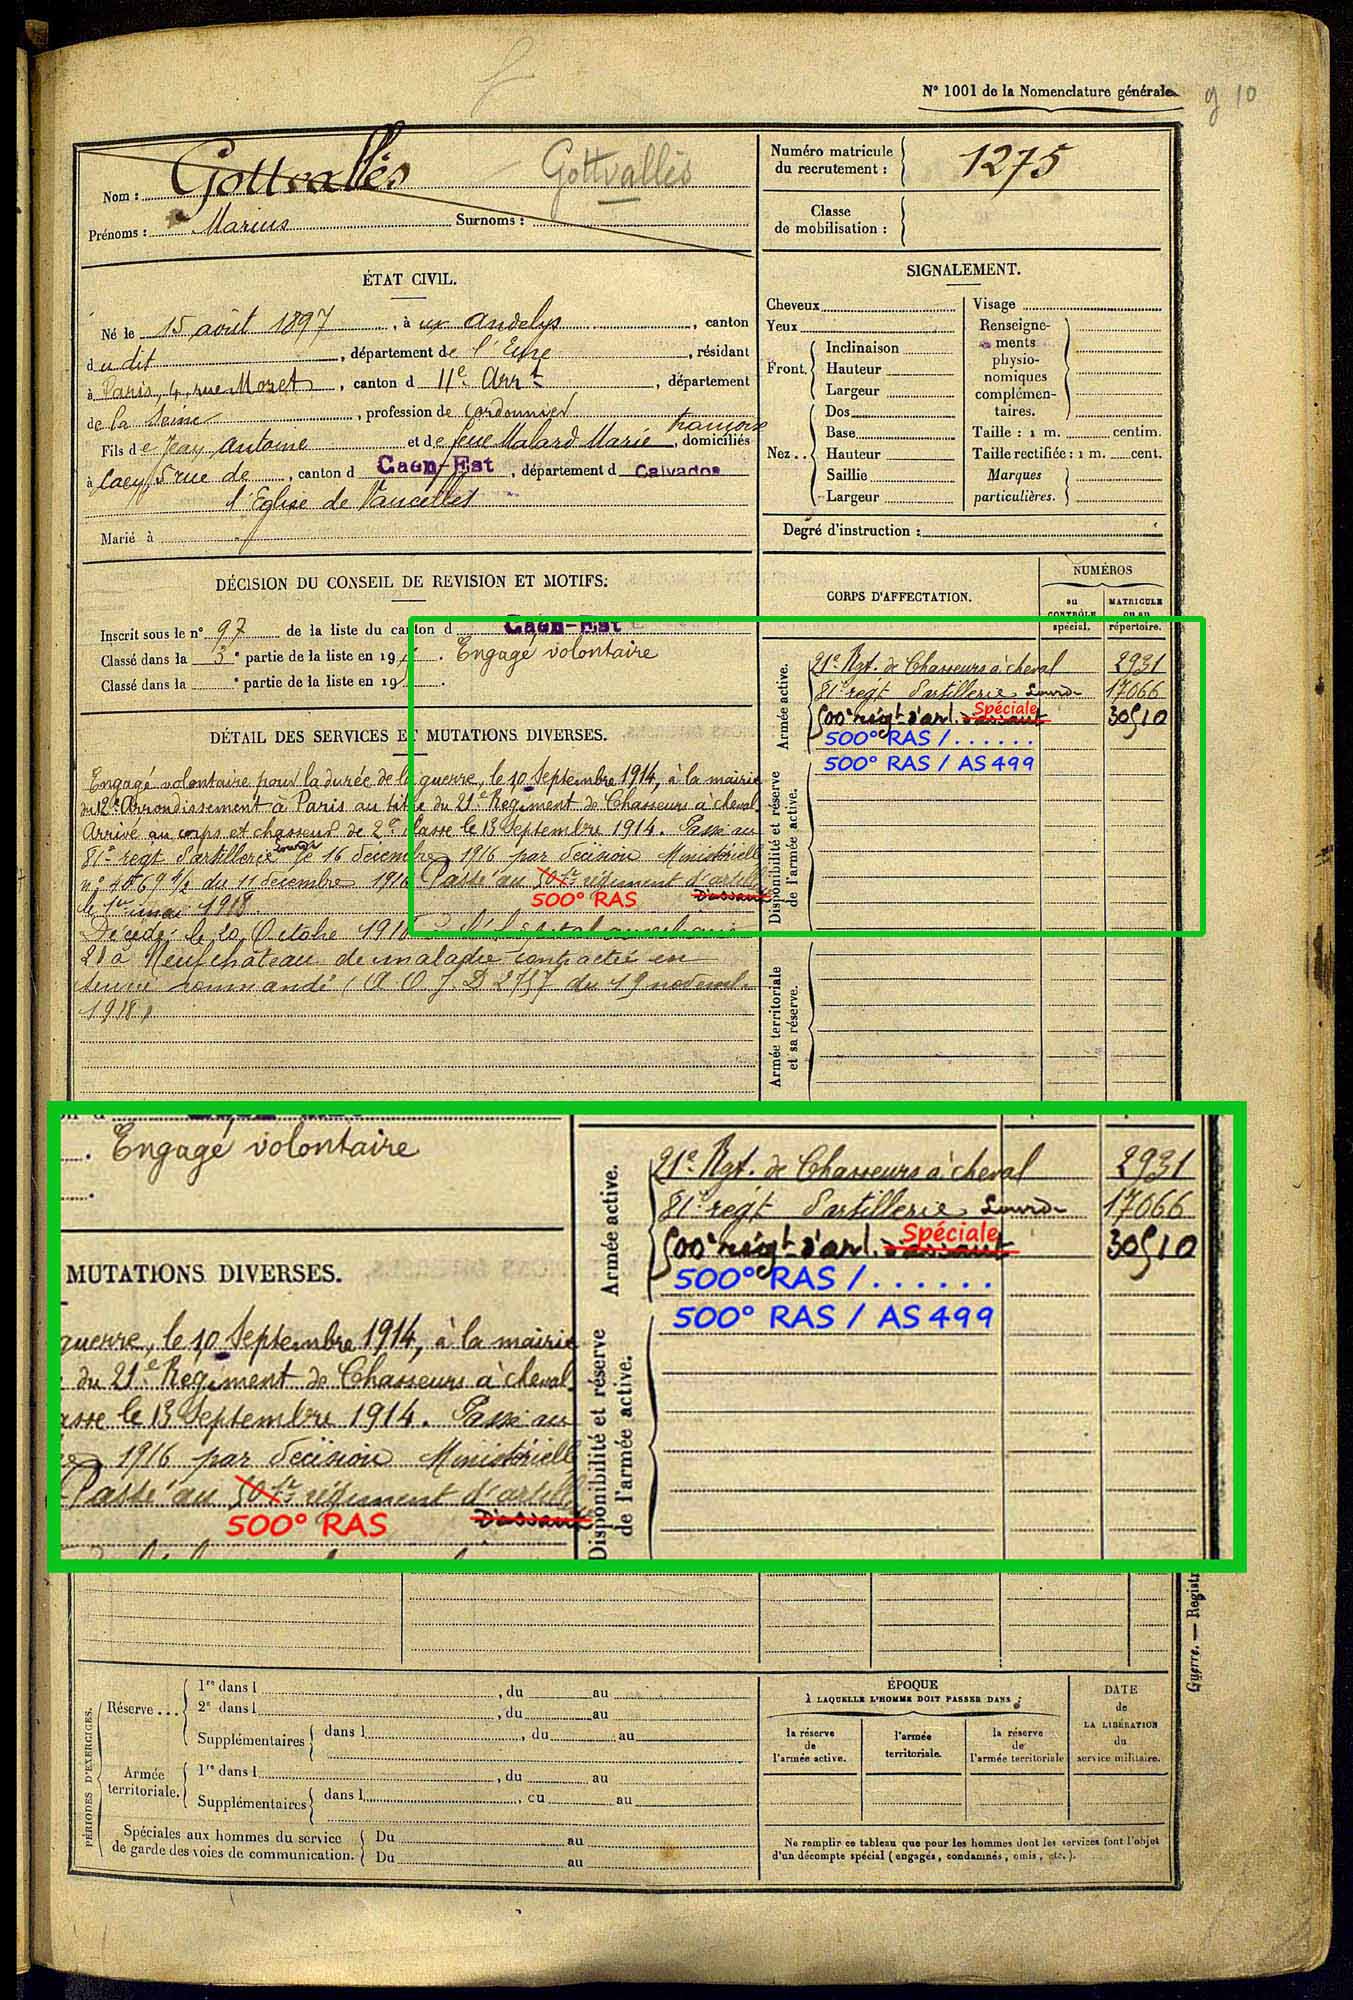 N° 1001 de la Nomenclature générale.
g 10
Nom : Gottvallès Gottvallès
Prénoms : Marius Surnoms :
Numéro matricule du recrutement : 1275
Classe de mobilisation :
ÉTAT CIVIL.
Né le 15 août 1897, à ux Andelys, canton
du dit, département de l'Eure, résidant
à Paris, 4, rue Moret, canton d 11e Arrt, département
de la Seine, profession de cordonnier
Fils de Jean Antoine et de feue Malard Marie françoise, domiciliés
à Caen, 5 rue de, canton d Caen-Est, département d Calvados
l'Eglise de Vaucelles
Marié à
SIGNALEMENT.
Cheveux
Yeux
Front. Inclinaison
Hauteur
Largeur
Nez.. Dos
Base
Hauteur
Saillie
Largeur
Visage
Renseigne-
ments
physio-
nomiques
complémen-
taires.
Taille : 1 m. centim.
Taille rectifiée : 1 m. cent.
Marques
particulières.
Degré d'instruction :
DÉCISION DU CONSEIL DE REVISION ET MOTIFS.
Inscrit sous le n° 97 de la liste du canton d Caen-Est
Classé dans la 3e partie de la liste en 19 . Engagé volontaire
Classé dans la e partie de la liste en 19 .
CORPS D'AFFECTATION.
NUMÉROS
au CONTRÔLE spécial.
MATRICULE ou au répertoire.
Armée active.
21e Rgt. de Chasseurs à cheval 2931
81e régt d'artillerie Lourde 17066
500e régt d'art. d'assaut Spéciale 30510
500° RAS / . . . . . .
500° RAS / AS 499
Disponibilité et réserve de l'armée active.
Armée territoriale et sa réserve.
DÉTAIL DES SERVICES ET MUTATIONS DIVERSES.
Engagé volontaire pour la durée de la guerre, le 10 Septembre 1914, à la mairie
du 12e Arrondissement à Paris au titre du 21e Régiment de Chasseurs à cheval.
Arrivé au corps et chasseur de 2e classe le 13 Septembre 1914. Passé au
81e régt d'artillerie Lourde le 16 décembre 1916 par décision Ministérielle
n° 1/2 du 11 décembre 1916 Passé au 501e régiment d'artill
500° RAS D'assaut
le 1er mai 1918
Décédé le 20 Octobre 1918 à l'hôpital
20 à Neufchateau de maladie contractée en
service commandé (A.O.J.D 2757 du 19 novembre
1918)
Engagé volontaire
MUTATIONS DIVERSES.
guerre, le 10 Septembre 1914, à la mairie
du 21e Régiment de Chasseurs à cheval.
asse le 13 Septembre 1914. Passé au
1916 par décision Ministérielle
Passé au 501e régiment d'artill
500° RAS D'assaut
Armée active.
21e Rgt. de Chasseurs à cheval 2931
81e régt d'artillerie Lourde 17066
500e régt d'art. d'assaut Spéciale 30510
500° RAS / . . . . . .
500° RAS / AS 499
Disponibilité et réserve de l'armée active.
Guerre. — Registr
PÉRIODES D'EXERCICES.
Réserve ... 1re dans l , du au
2e dans l , du au
Supplémentaires dans l , du au
Armée territoriale. 1re dans l , du au
Supplémentaires dans l , cu au
Spéciales aux hommes du service de garde des voies de communication. Du au
Du au
ÉPOQUE
À LAQUELLE L'HOMME DOIT PASSER DANS :
la réserve de l'armée active.
l'armée territoriale.
la réserve de l'armée territoriale
DATE de LA LIBÉRATION du service militaire.
Ne remplir ce tableau que pour les hommes dont les services font l'objet
d'un décompte spécial (engagés, condamnés, omis, etc.).